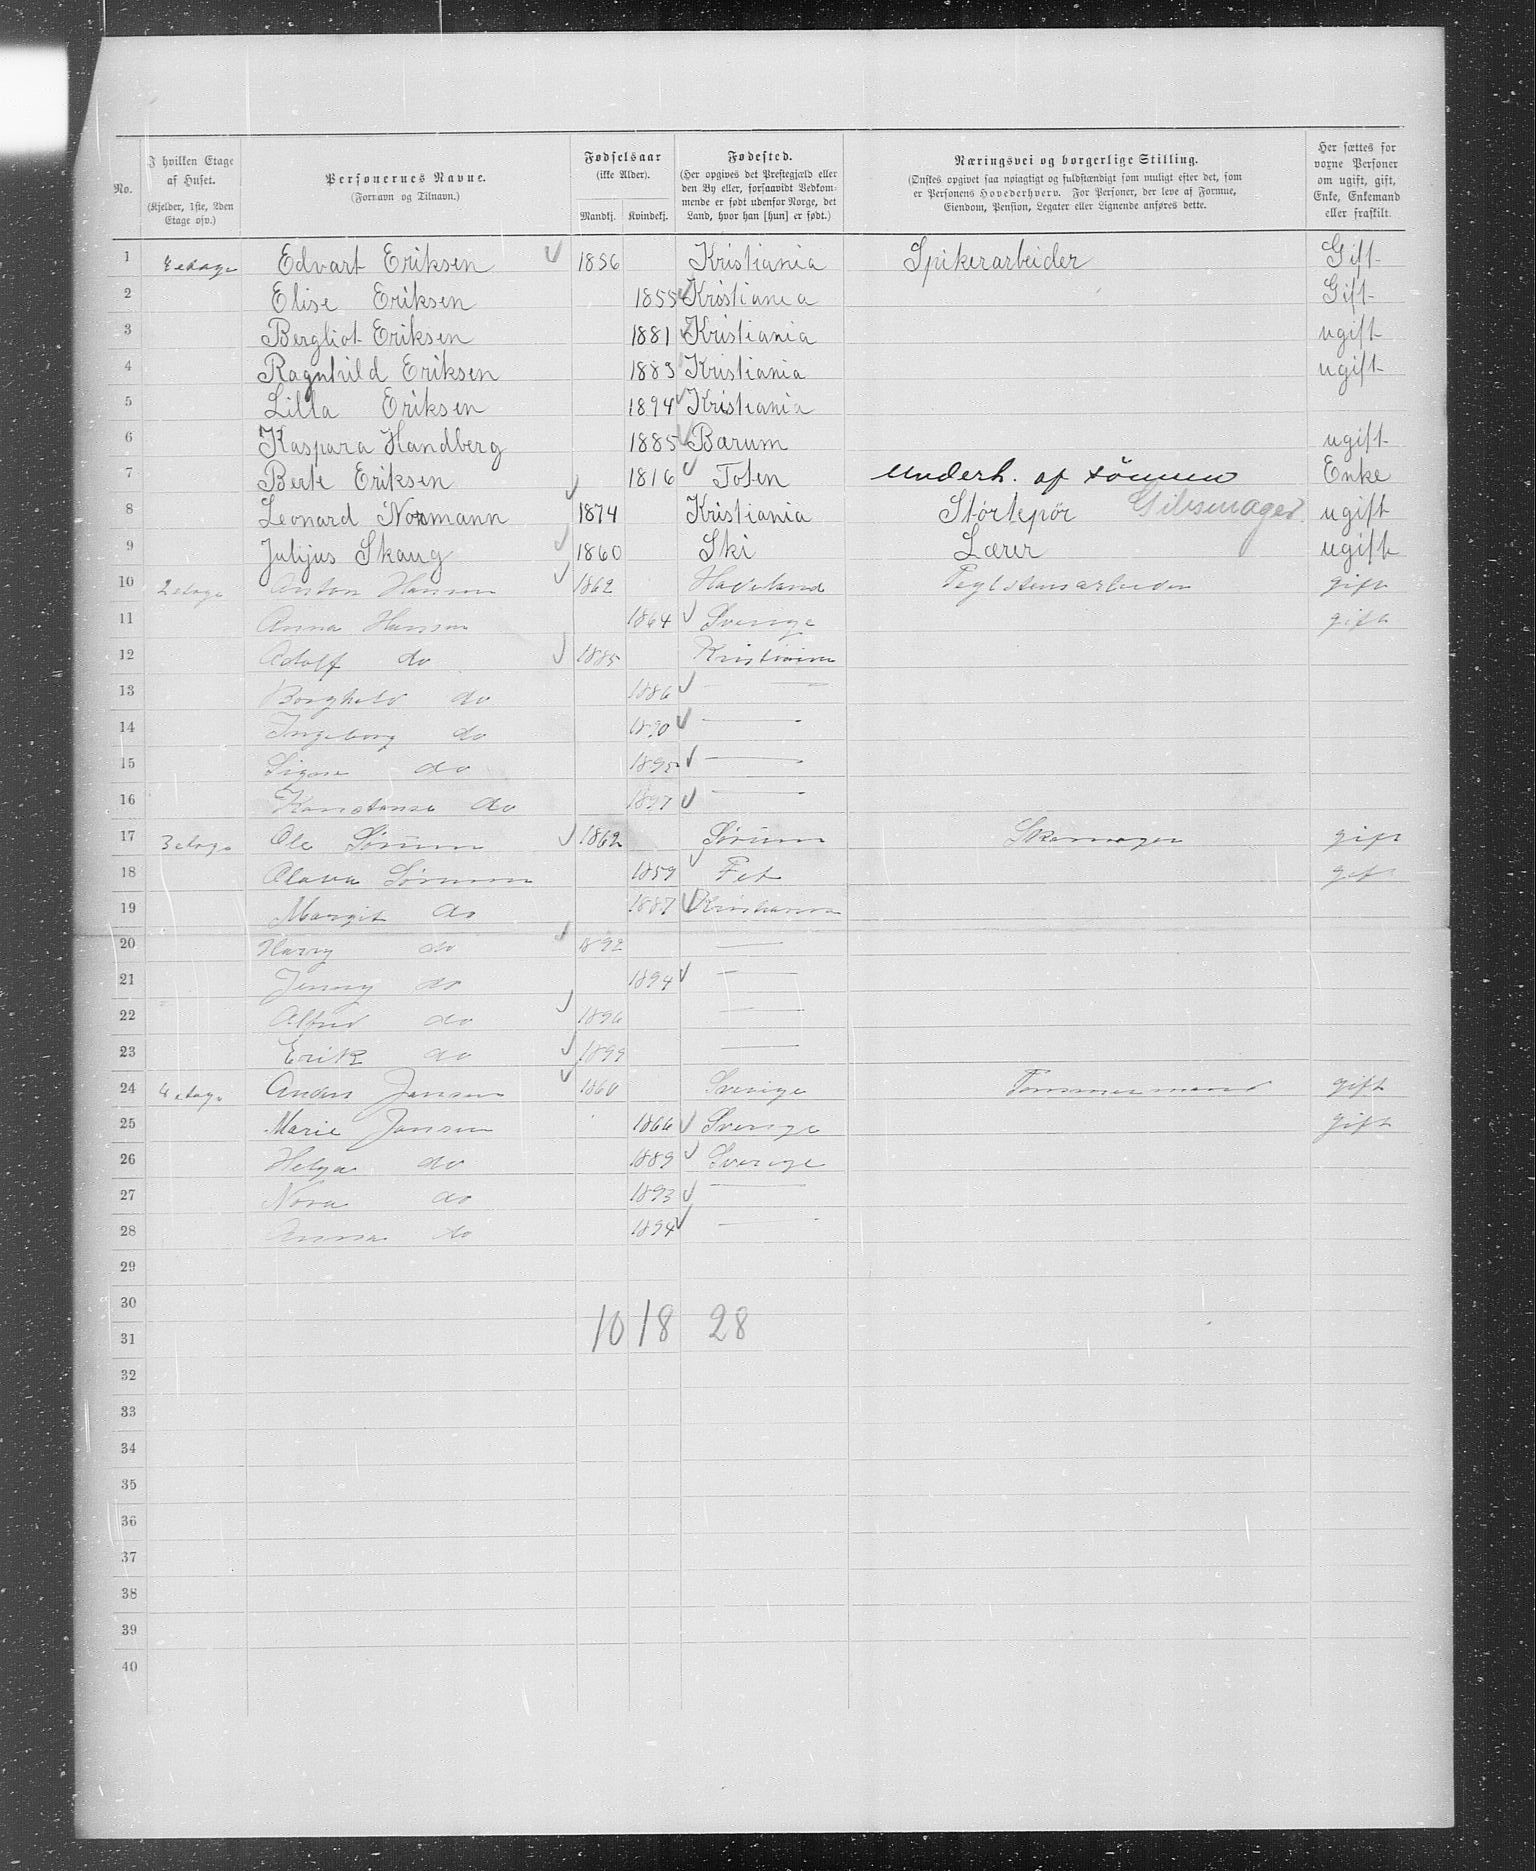 No.
I hvilken Etage af Huset. (Kjelder, 1ste, 2den Etage osv.)
Personernes Navne. (Fornavn og Tilnavn.)
Fødselsaar (ikke Alder). Mandkj. Kvindekj.
Fødested. (Her opgives det Prestegjæld eller den By eller, forsaavidt Vedkommende er født udenfor Norge, det Land, hvor han [hun] er født.)
Næringsvei og borgerlige Stilling. (Ønskes opgivet saa nøiagtigt og fuldstændigt som muligt efter det, som er Personens Hovederhverv. For Personer, der leve af Formue, Eiendom, Pension, Legater eller Lignende anføres dette.
Her sættes for voxne Personer om ugift, gift, Enke, Enkemand eller fraskilt.
1 etage Edvart Eriksen 1856 Kristiania Spikerarbeider Gift
2 Elise Eriksen 1855 Kristiania Gift
3 Bergliot Eriksen 1881 Kristiania ugift
4 Ragnhild Eriksen 1883 Kristiania ugift
5 Lilla Eriksen 1894 Kristiania
6 Kaspara Handberg 1885 Bærum ugift
7 Berte Eriksen 1816 Toten Underh. af sönnen Enke
8 Leonard Normann 1874 Kristiania Störtepör Gibsmager ugift
9 Julijus Skaug 1860 Ski Lærer ugift
10 2 etage Anton Hansen 1862 Hadeland Teglstensarbeider gift
11 Anna Hansen 1864 Sverige gift
12 Adolf do 1885 Kristiania
13 Borghild do 1886 —
14 Ingeborg do 1890 —
15 Signe do 1895 —
16 Konstanse do 1897 —
17 3 etage Ole Sørum 1862 Sørum Skomager gift
18 Olava Sørum 1859 Fet gift
19 Margit do 1887 Kristiania
20 Harry do 1892 —
21 Jenny do 1894 —
22 Alfred do 1896 —
23 Erik do 1899 —
24 4 etage Anders Jansen 1860 Sverige Tømmermand gift
25 Marie Jansen 1866 Sverige gift
26 Helga do 1889 Sverige
27 Nora do 1893 —
28 Anna do 1894 —
29
30
31 10 18 28
32
33
34
35
36
37
38
39
40